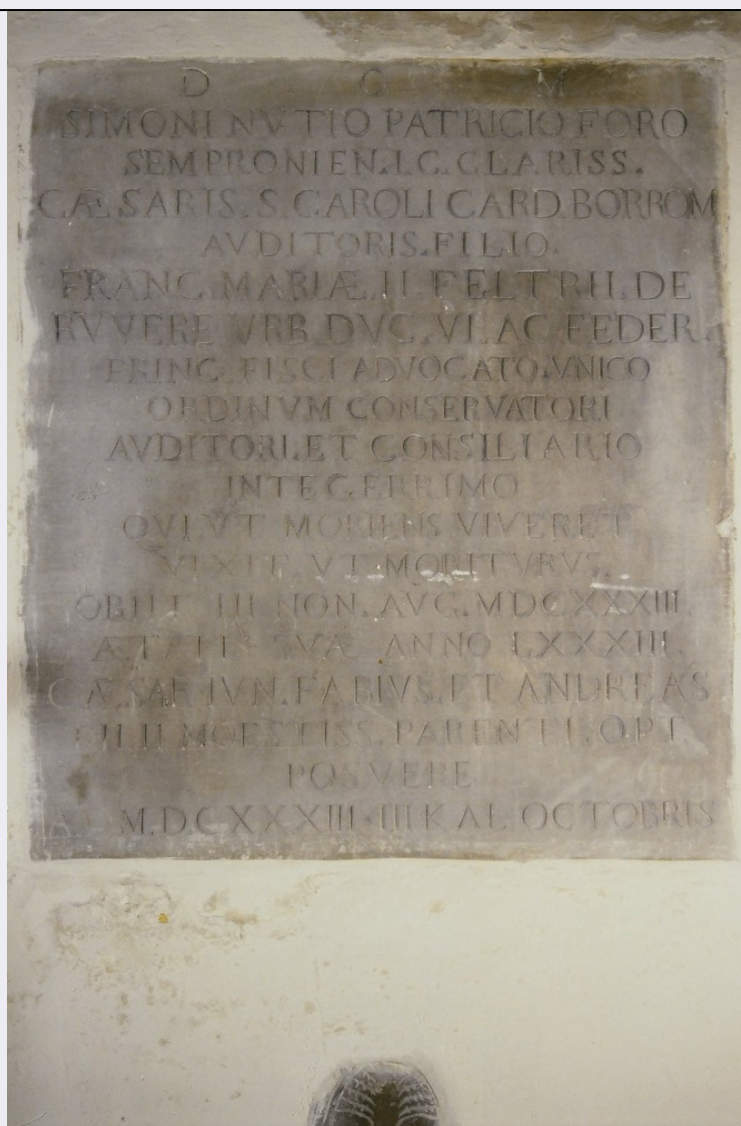 D O M
SIMONI NVTIO PATRICIO FORO
SEMPRONIEN. I. C. CLARISS.
CÆSARIS. S. CAROLI CARD. BORROM
AVDITORIS. FILIO.
FRANC. MARIÆ. II. FELTRII. DE
RVVERE VRB. DVC. VI. AC FEDER.
PRINC. FISCI ADVOCATO. VNICO
ORDINVM CONSERVATORI
AVDITORI. ET CONSILIARIO
INTEGERRIMO
QVI VT MORIENS VIVERET
VIXIT. VT MORITVRVS.
OBIIT III NON. AVG. MDCXXXIII.
ÆTATIS SVÆ ANNO LXXXIII.
CÆSAR IVN. FABIVS. ET ANDREAS
FILII MOESTISS. PARENTI. OPT.
POSVERE
M.DCXXXIII. III KAL OCTOBRIS